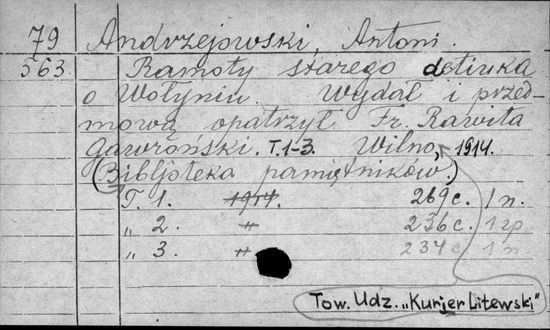 79 Andrzejowski, Antoni.
563. Ramoty starego detiuka
o Wołyniu. Wydał i przed-
mową opatrzył Fr. Rawita
Gawroński. T. 1-3. Wilno, 1914.
(Bibljoteka pamiętników.)
T. 1. 1914. 269 c. 1 n.
„ 2. „ 236 c. 1
„ 3. „ 234 c. 1 n.
Tow. Udz. „Kurjer Litewski"